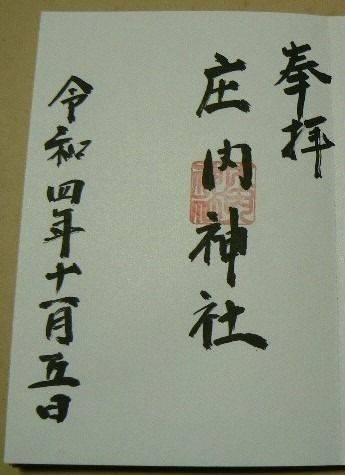 奉拝
庄内神社
令和四年十一月五日